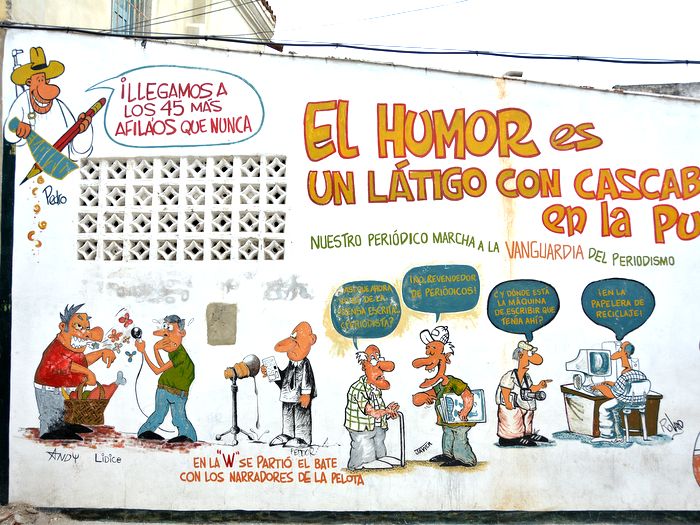 ¡LLEGAMOS A
LOS 45 MÁS
AFILA'OS QUE NUNCA
Pedro
EL HUMOR es
UN LÁTIGO CON CASCAB
en la PU
NUESTRO PERIÓDICO MARCHA A LA VANGUARDIA DEL PERIODISMO
DE LA
ESCRITA,
PERIODISTA?
¡NO, REVENDEDOR
DE PERIÓDICOS!
¿Y DÓNDE ESTÁ
LA MÁQUINA
DE ESCRIBIR QUE
TENÍA AHÍ?
¡EN LA
PAPELERA DE
RECICLAJE!
ANDY
Lidice
JAVIER
EN LA "W" SE PARTIÓ EL BATE
CON LOS NARRADORES DE LA PELOTA